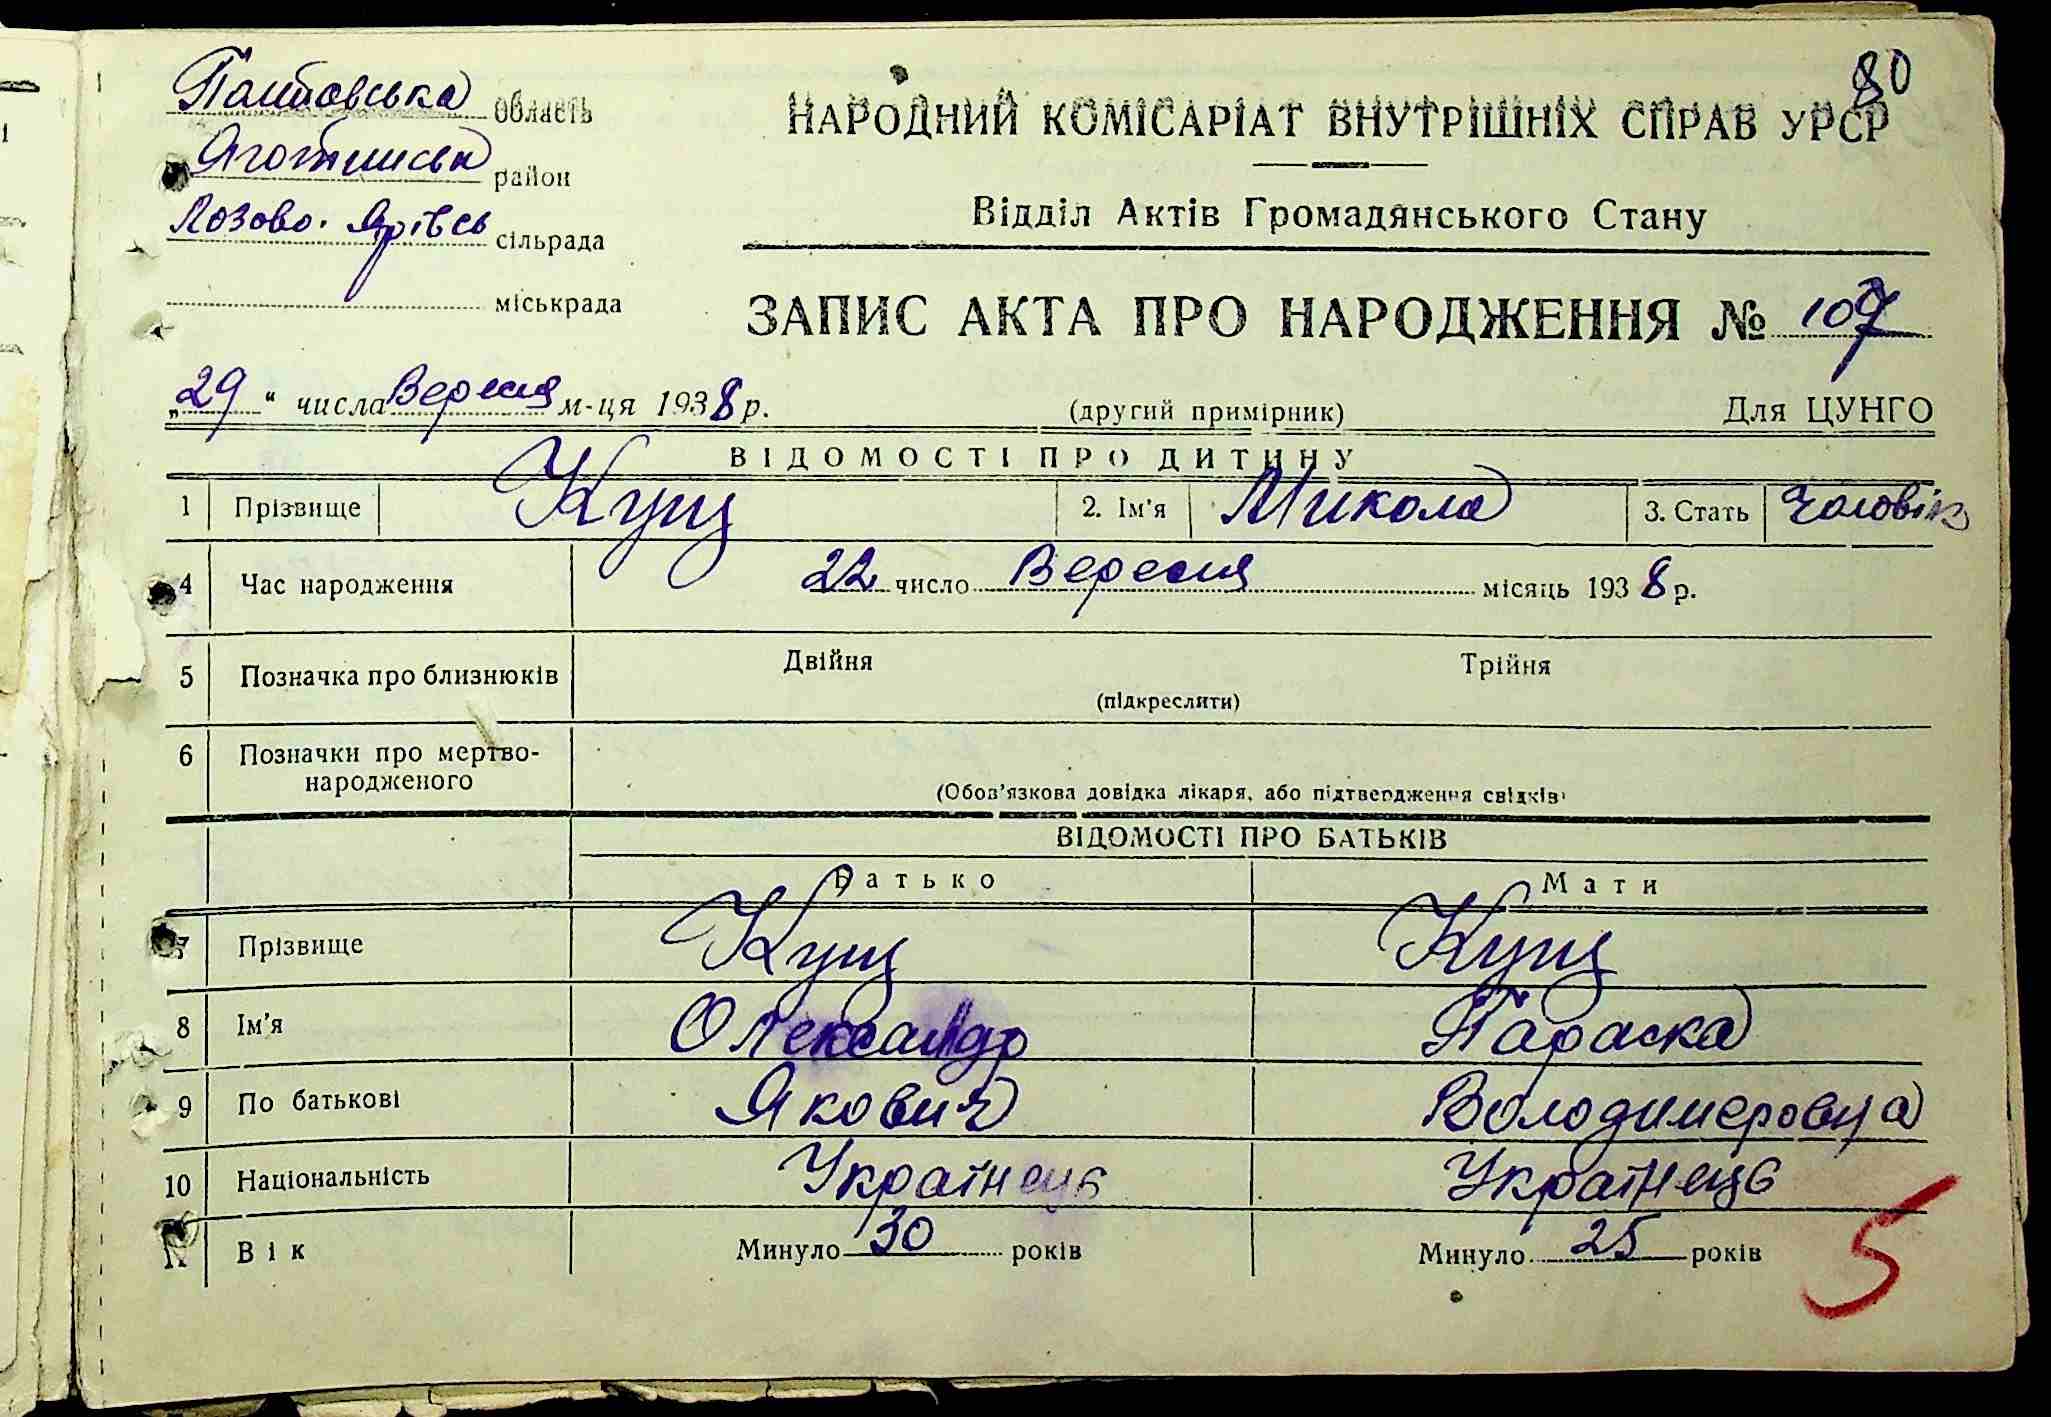 80
Полтавська область
НАРОДНИЙ КОМІСАРІАТ ВНУТРІШНІХ СПРАВ УРСР
Яготинськ район
Лозово. Ярівсь сільрада
Відділ Актів Громадянського Стану
міськрада
ЗАПИС АКТА ПРО НАРОДЖЕННЯ № 107
„29“ числа Вересня м-ця 1938 р. (другий примірник) Для ЦУНГО
ВІДОМОСТІ ПРО ДИТИНУ
1 Прізвище Кущ 2. Ім'я Микола 3. Стать Чоловік
4 Час народження 22 число Вересня місяць 1938 р.
5 Позначка про близнюків Двійня Трійня
(підкреслити)
6 Позначки про мертво-
народженого
(Обов'язкова довідка лікаря, або підтвердження свідків)
ВІДОМОСТІ ПРО БАТЬКІВ
Батько Мати
7 Прізвище Кущ Кущ
8 Ім'я Олександр Параска
9 По батькові Якович Володимеровна
10 Національність Українець Українець
11 Вік Минуло 30 років Минуло 25 років
5